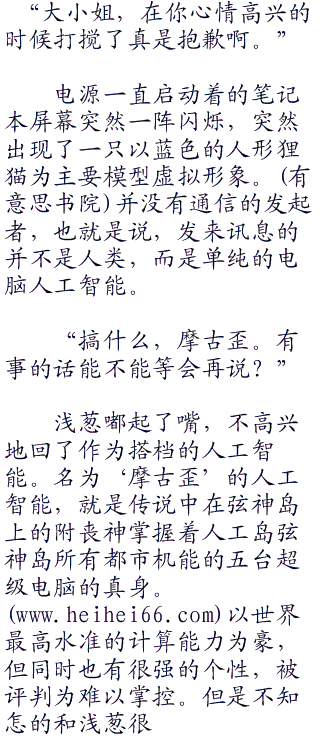 “大小姐，在你心情高兴的
时候打搅了真是抱歉啊。”
电源一直启动着的笔记
本屏幕突然一阵闪烁，突然
出现了一只以蓝色的人形狸
猫为主要模型虚拟形象。(有
意思书院)并没有通信的发起
者，也就是说，发来讯息的
并不是人类，而是单纯的电
脑人工智能。
“搞什么，摩古歪。有
事的话能不能等会再说？”
浅葱嘟起了嘴，不高兴
地回了作为搭档的人工智
能。名为‘摩古歪’的人工
智能，就是传说中在弦神岛
上的附丧神掌握着人工岛弦
神岛所有都市机能的五台超
级电脑的真身。
(www.heihei66.com)以世界
最高水准的计算能力为豪，
但同时也有很强的个性，被
评判为难以掌控。但是不知
怎的和浅葱很